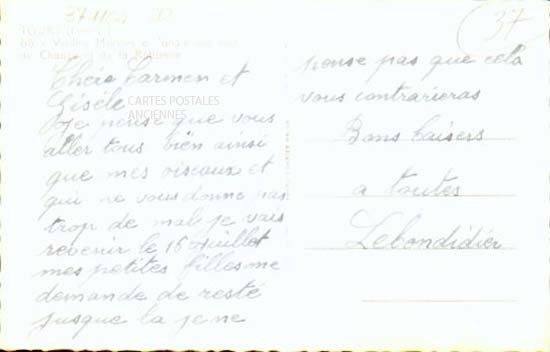 37-1104
37
TOURS
68 - Vieilles Maisons
de Change et de la Rôtisserie
Chère Carmen et
Gisèle
CARTES POSTALES
ANCIENNES
Je pense que vous
aller tous bien ainsi
que mes oiseaux et
qui ne vous donne pas
trop de mal je vais
revenir le 16 Juillet
mes petites filles me
demande de resté
jusque la je ne
pense pas que cela
vous contrarieras
Bons baisers
a toutes
Lebondidier